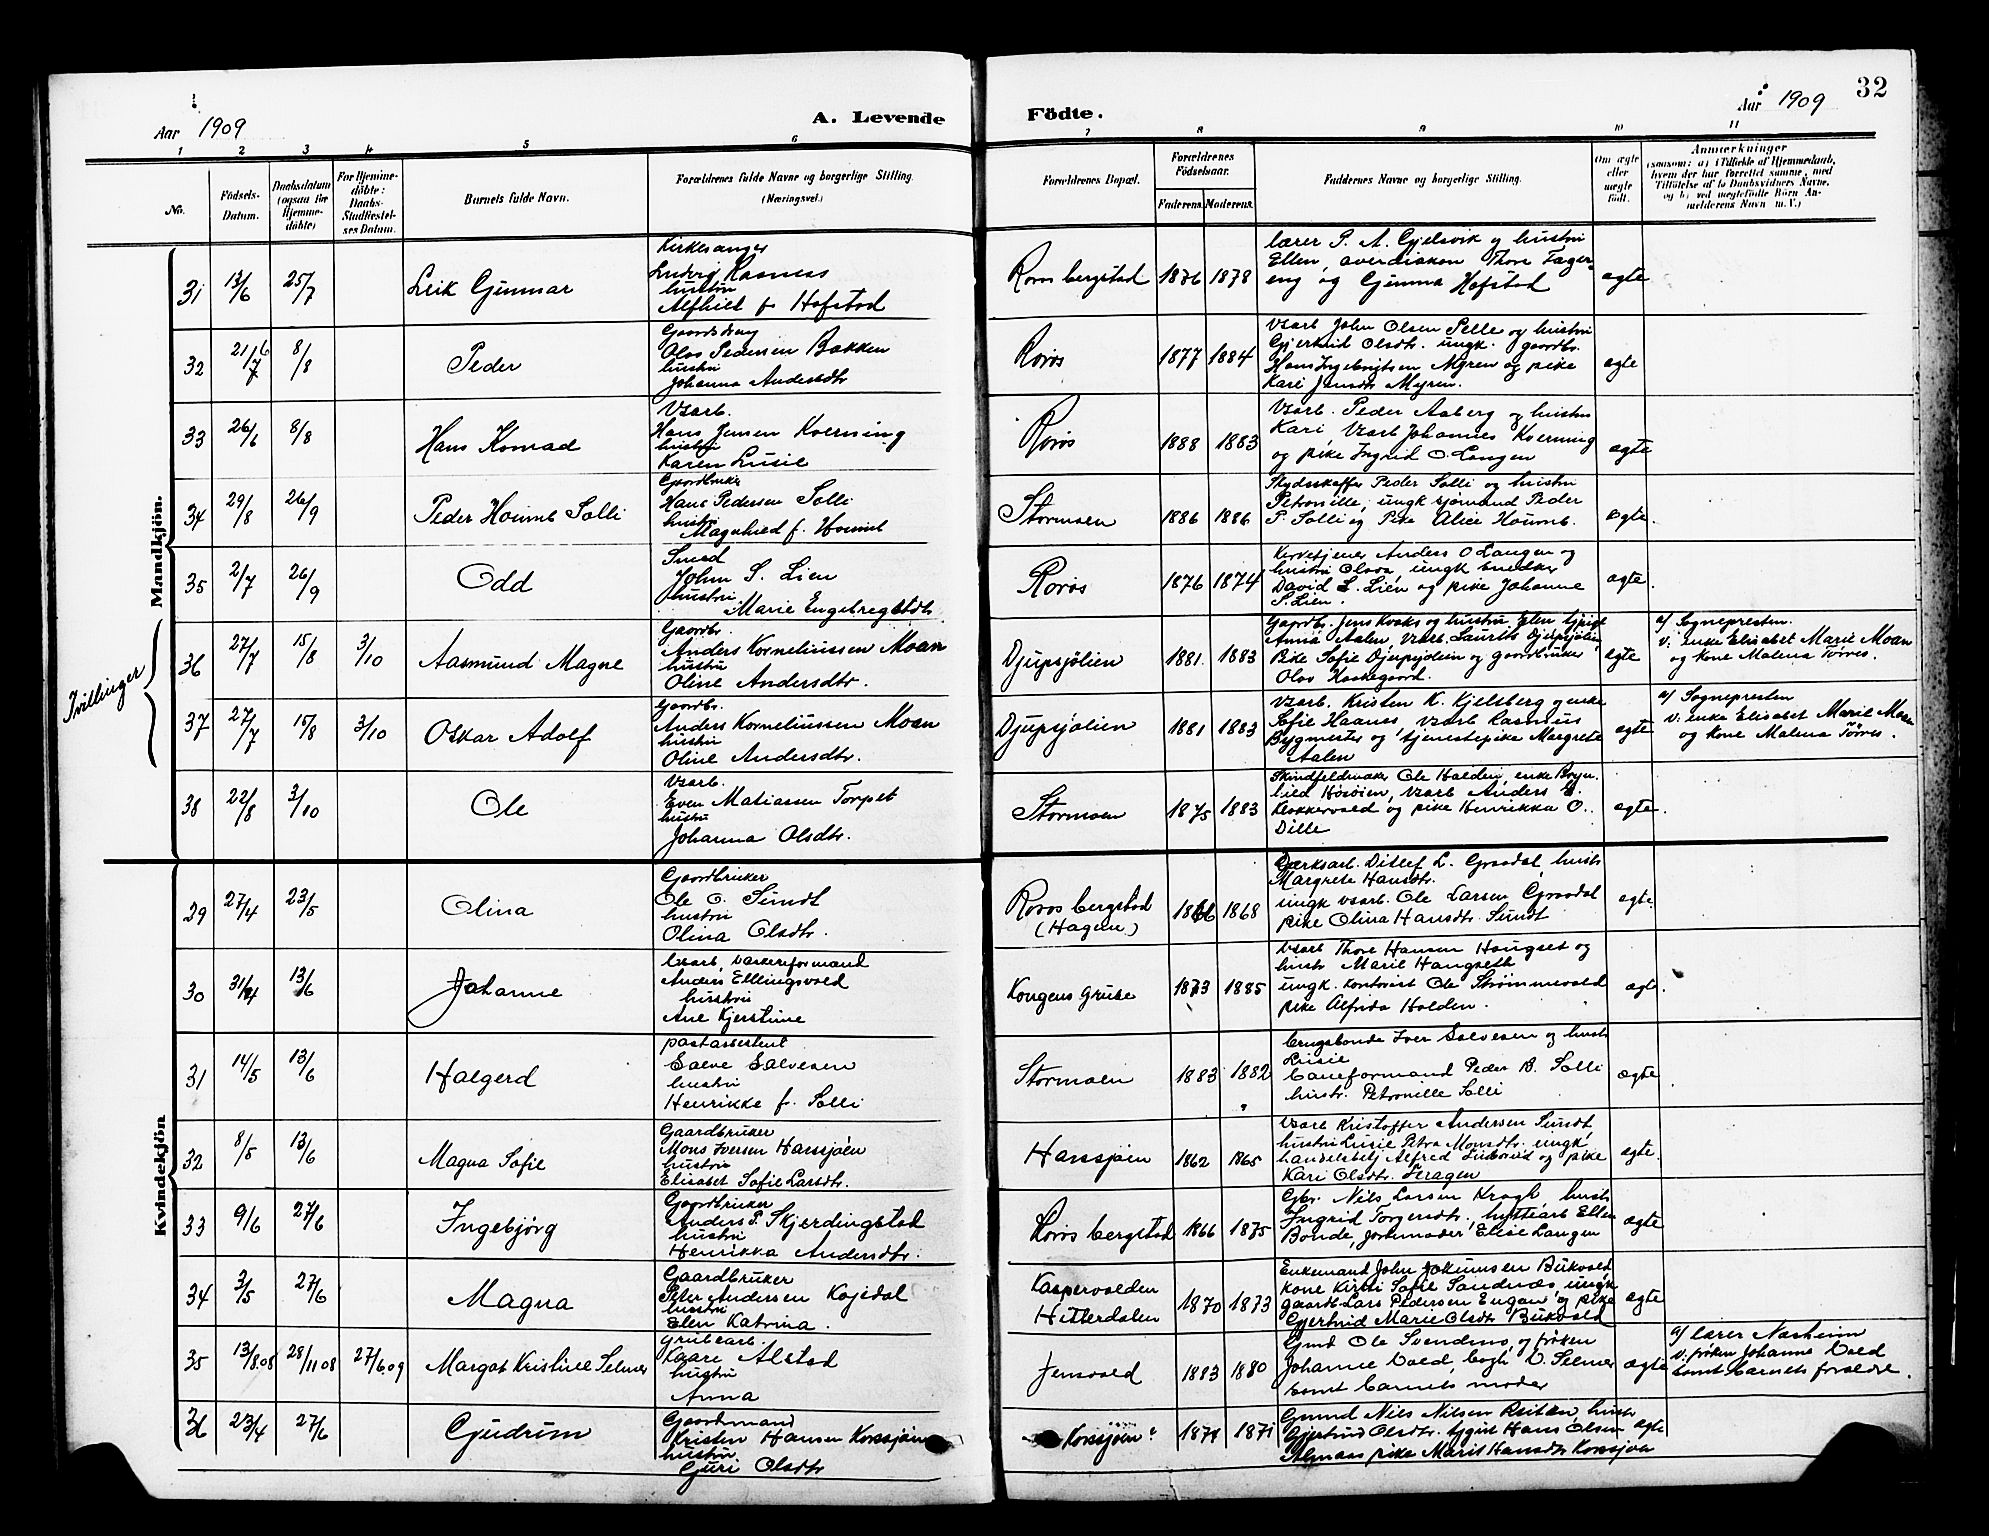 32
Aar 1909
A. Levende
Födte.
Aar 1909
1 2 3 4 5 6 7 8 9 10 11
No.
Födsels-
Datum.
Daabsdatum
(ogsaa för
Hjemme-
döbte)
For Hjemme-
döbte:
Daabs-
Stadfæstel-
ses Datum.
Barnets fulde Navn.
Forældrenes fulde Navne og borgerlige Stilling.
(Næringsvei.)
Forældrenes Bopæl.
Forældrenes
Födselsaar.
Faderens. Moderens.
Faddernes Navne og borgerlige Stilling.
Om ægte
eller
uægte
födt.
Anmærkninger
(saasom: a) i Tilfælde af Hjemmedaab,
hvem der har forrettet samme, med
Tilföielse af to Daabsvidners Navne,
og b) ved uægtefödte Börn An-
melderens Navn m. V.)
Mandkjön.
31 13/6 25/7 Leik Gunnar
Kirkesanger
Ludvig Rasmess
hustru
Alfhild f. Hofstad
Roros bergstad 1876 1878
lærer P. A. Gjelsvik og hustru
Ellen, overdiakon Thore Fager-
eng og Gunma Hofstad
ægte
32 21/7 6 8/8 Peder
Gaardsbrug
Olos Pedersen Bakken
hustru
Johanna Andersdtr
Roros 1877 1884
Vsarb John Olsen Pelle og hustru
Gjertrud Olsdtr. ungk. gaardbr.
Hans Ingebrigtsen Myren og pike
Kari Jensdtr Myren.
ægte
33 26/6 8/8 Hans Konrad
Vsarb.
Hans Jensen Kverning
hustru
Karen Lusie
Roros 1888 1883
Vsarb. Peder Aaberg og hustru
Kari, Vsarb Johannes Kverning
og pike Ingrid O. Langen
ægte
34 29/8 26/9 Peder Houmb Solli
Gaardbruker
Hans Pedersen Solli
hustru
Magnhild f. Houmb
Stormoen 1886 1886
Skydsskaffer Peder Solli og hustru
Petronille, ungk sjömand Peder
P. Solli og Pike Alice Houmb.
ægte.
35 2/7 26/9 Odd
Smed
John S. Lien
hustru
Marie Engebregtsdtr
Roros 1876 1874
Kirketjener Anders O Langen og
hustru Olova, ungk snedker
David L. Lien og pike Johanne
S. Lien.
ægte.
Tvillinger
36 27/7 15/8 3/10 Aasmund Magne
Gaardbr.
Anders Korneliussen Moan
hustru
Oline Andersdtr.
Djupsjölien 1881. 1883
Gaardbr. Jens Kroks og hustru Elen tjpigt
Anna Aalen, Vsarb. Laurits Djupsjölien,
Pike Sofie Djupsjölien og gaardbruker
Olos Kaasgaard.
ægte
a/ Sognepresten.
v. enke Elisabet Marie Moan
og kone Malena Törres.
37 27/7 15/8 3/10 Oskar Adolf
Gaardbr.
Anders Korneliussen Moan
hustru
Oline Andersdtr.
Djupsjölien 1881 1883
Vsarb. Kristen K. Kjelsberg og enke
Sofie Haanes, Vsarb Rasmus
Bygmester og tjenestepike Margrete
Aalen
ægte
a/ Sognepresten
v. enke Elisabet Marie Moan
og kone Malena Törres.
38 22/8 3/10 Ole
Vsarb.
Even Matiassen Torpet
hustru
Johanna Olsdtr.
Stormoen 1875 1883
Skindfeldmaker Ole Halden, enke Bryn-
hild Hösöien, Vsarb Anders E.
Klokkervold og pike Henrikka O.
Dille
ægte.
Kvindekjön
29 27/4 23/5 Olina
Gaardbruker
Ole O. Sundt
hustru
Olina Olsdtr.
Roros bergstad
(Hagen) 1866 1868
Værksarb. Ditlef L. Graadal, hustr
Margrete Hansdtr.
ungk vsarb. Ole Larsen Graadal
pike Olina Hansdtr Sundt
ægte.
30 31/4 13/6 Johanne
Vsarb, vaskereformand
Anders Ellingsvold
hustru
Ane Kjerstine
Kongens Grube 1873 1885
Vsarb Thore Hansen Haugset og
hustr Marie Haugseth
ungk. kontorist Ole Strömmevold
pike Alfrida Holden.
ægt.
31 14/5 13/6 Halgerd
postassistent
Salve Salvesen
hustru
Henrikke f. Solli
Stormoen 1883 1882
brugsbonde Iver Salvesen og hustr
Lusie
baneformand Peder B. Solli
hustr. Petronille Solli
ægte
32 8/5 13/6 Magna Sofie
Gaardbruker
Mons Iversen Hanssjöen
hustru
Elisabet Sofie Larsdtr.
Hanssjöen 1862 1865
Vsarb Kristoffer Andersen Sundt
hustru Lusie Petra Monsdtr. ungk
handelsbetj Alfred og pike
Kari Olsdtr. Feragen
ægte.
33 9/6 27/6 Ingebjörg
Gaardbruker
Anders P. Skjerdingstad
hustru
Henrikka Andersdtr.
Roros bergstad 1866 1875
Gbr. Nils Larsen Kragh, hustr
Ingrid Torgersdtr. hyttearb Ellen
Bonde, Jordmoder Elise Langen
ægte
34 3/5 27/6 Magna
Gaardbruker
Peter Andersen Kojedal
hustru
Elen Katrina.
Kaspervolden
Hitterdalen 1870 1873
Enkemand John Jokumsen Bukvold
Kone Kirsti Sofie Sandnæs, ungk
gaardb Lars Pedersen Engan og pike
Gjertrud Marie Olsdtr Bukvold
ægte
35 13/8.08 28/11 08 27/6.09 Margot Kristine Selmer
Grubearb.
Kaare Alstad
hustru
Anna
Jensvold 1883 1880
Gmd Ole Svendsno, og fröken
Johanne Vold, bogh V. Selmer
samt barnets moder
ægte
a/ lærer Nasheim
v. fröken Johanne Vold
samt barnets forældre.
36 23/4 27/6 Gudrun
Gaardmand
Kristen Hansen Korssjöen
hustru
Guri Olsdtr
Korssjöen 1871 1871
Gmd Nils Nilsen Reiten, hustr
Gjertrud Olsdtr. tjgut Hans Olsen
pike Marit Hansdtr Korssjöen
ægte